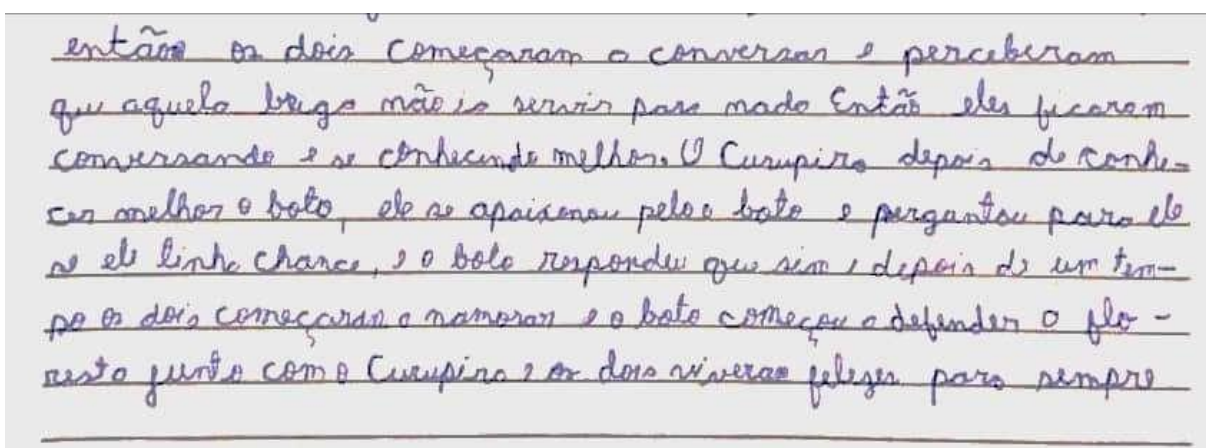 então os dois começaram a conversar e perceberam
que aquela briga não ia servir para nada Então eles ficaram
conversando e se conhecendo melhor. O Curupira depois de conhe-
cer melhor o boto, ele se apaixonou pelo o boto e perguntou para ele
se ele tinha chance, e o boto respondeu que sim e depois de um tem-
po os dois começarão a namorar e o boto começou a defender a flo-
resta junto com o Curupira e os dois viverão felizes para sempre